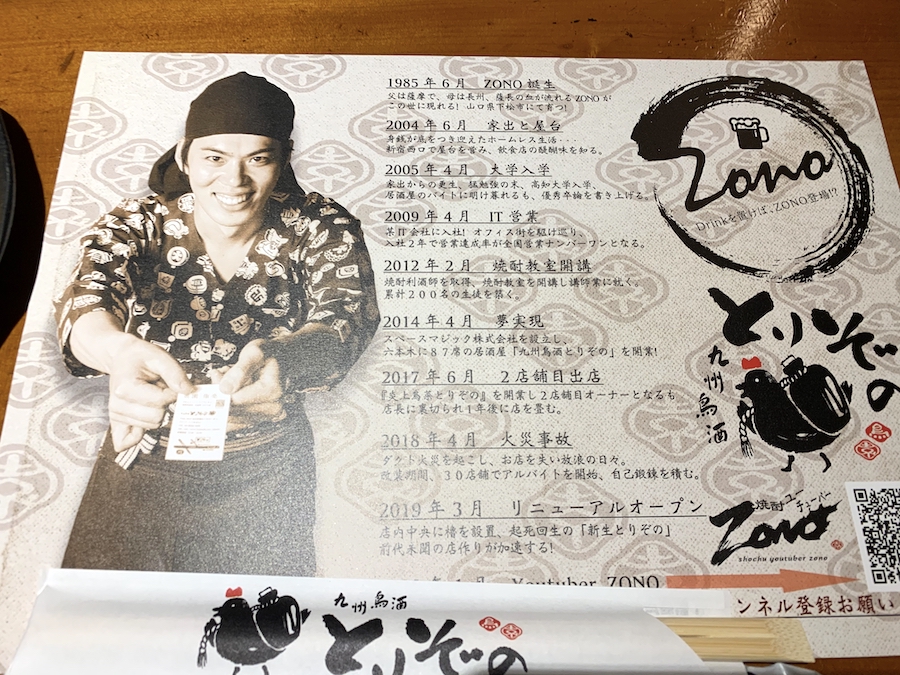 1985年6月 ZONO誕生
父は薩摩で、母は長州、薩長の血が流れるZONOが
この世に現れる! 山口県下松市にて育つ!
2004年6月 家出と屋台
身銭が底をつき迎えたホームレス生活・
新宿西口で屋台を営み、飲食店の醍醐味を知る。
2005年4月 大学入学
家出からの更生、猛勉強の末、高知大学入学。
居酒屋のバイトに明け暮れるも、優秀卒論を書き上げる。
2009年4月 IT営業
某IT会社に入社! オフィス街を駆け巡り、
入社2年で営業達成率が全国営業ナンバーワンとなる。
2012年2月 焼酎教室開講
焼酎利酒師を取得、焼酎教室を開講し講師業に就く。
累計200名の生徒を築く。
2014年4月 夢実現
スペースマジック株式会社を設立し、
六本木に87席の居酒屋「九州鳥酒とりぞの」を開業!
2017年6月 2店舗目出店
『炎上鳥菜とりぞの』を開業し2店舗目オーナーとなるも
店長に裏切られ1年後に店を畳む。
2018年4月 火災事故
ダクト火災を起こし、お店を失い放浪の日々。
改装期間、30店舗でアルバイトを開始、自己鍛錬を積む。
2019年3月 リニューアルオープン
店内中央に櫓を設置、起死回生の「新生とりぞの」
前代未聞の店作りが加速する!
Youtuber ZONO
Zono
Drinkを置けば、ZONO登場!?
とりぞの
九州鳥酒
焼酎ユーチューバー
Zono
shochu youtuber zono
ンネル登録お願い
九州鳥酒
とりぞの